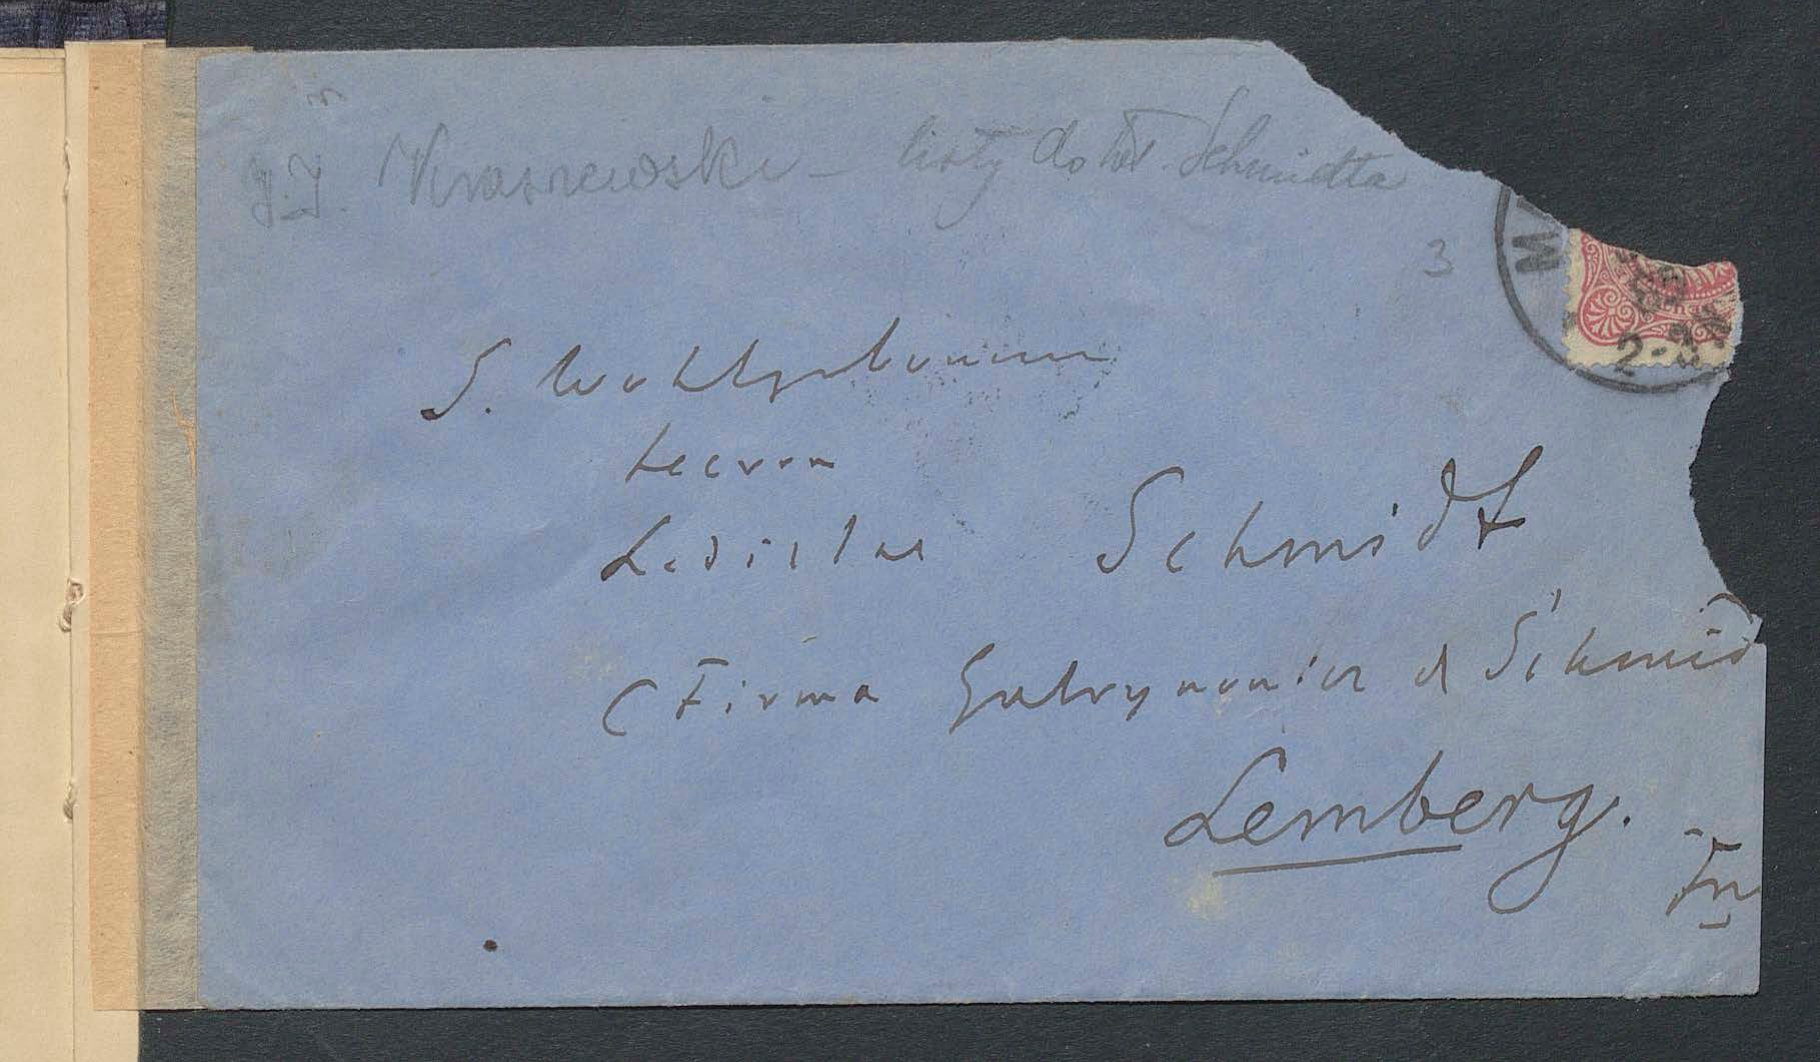 J.I. Kraszewski – listy do Wł. Schmidta
3
M
2-3N
S. Wohlgebornen
Herrn
Ladislas Schmidt
(Firma Gubrynowicz & Schmid
Lemberg.
Fr